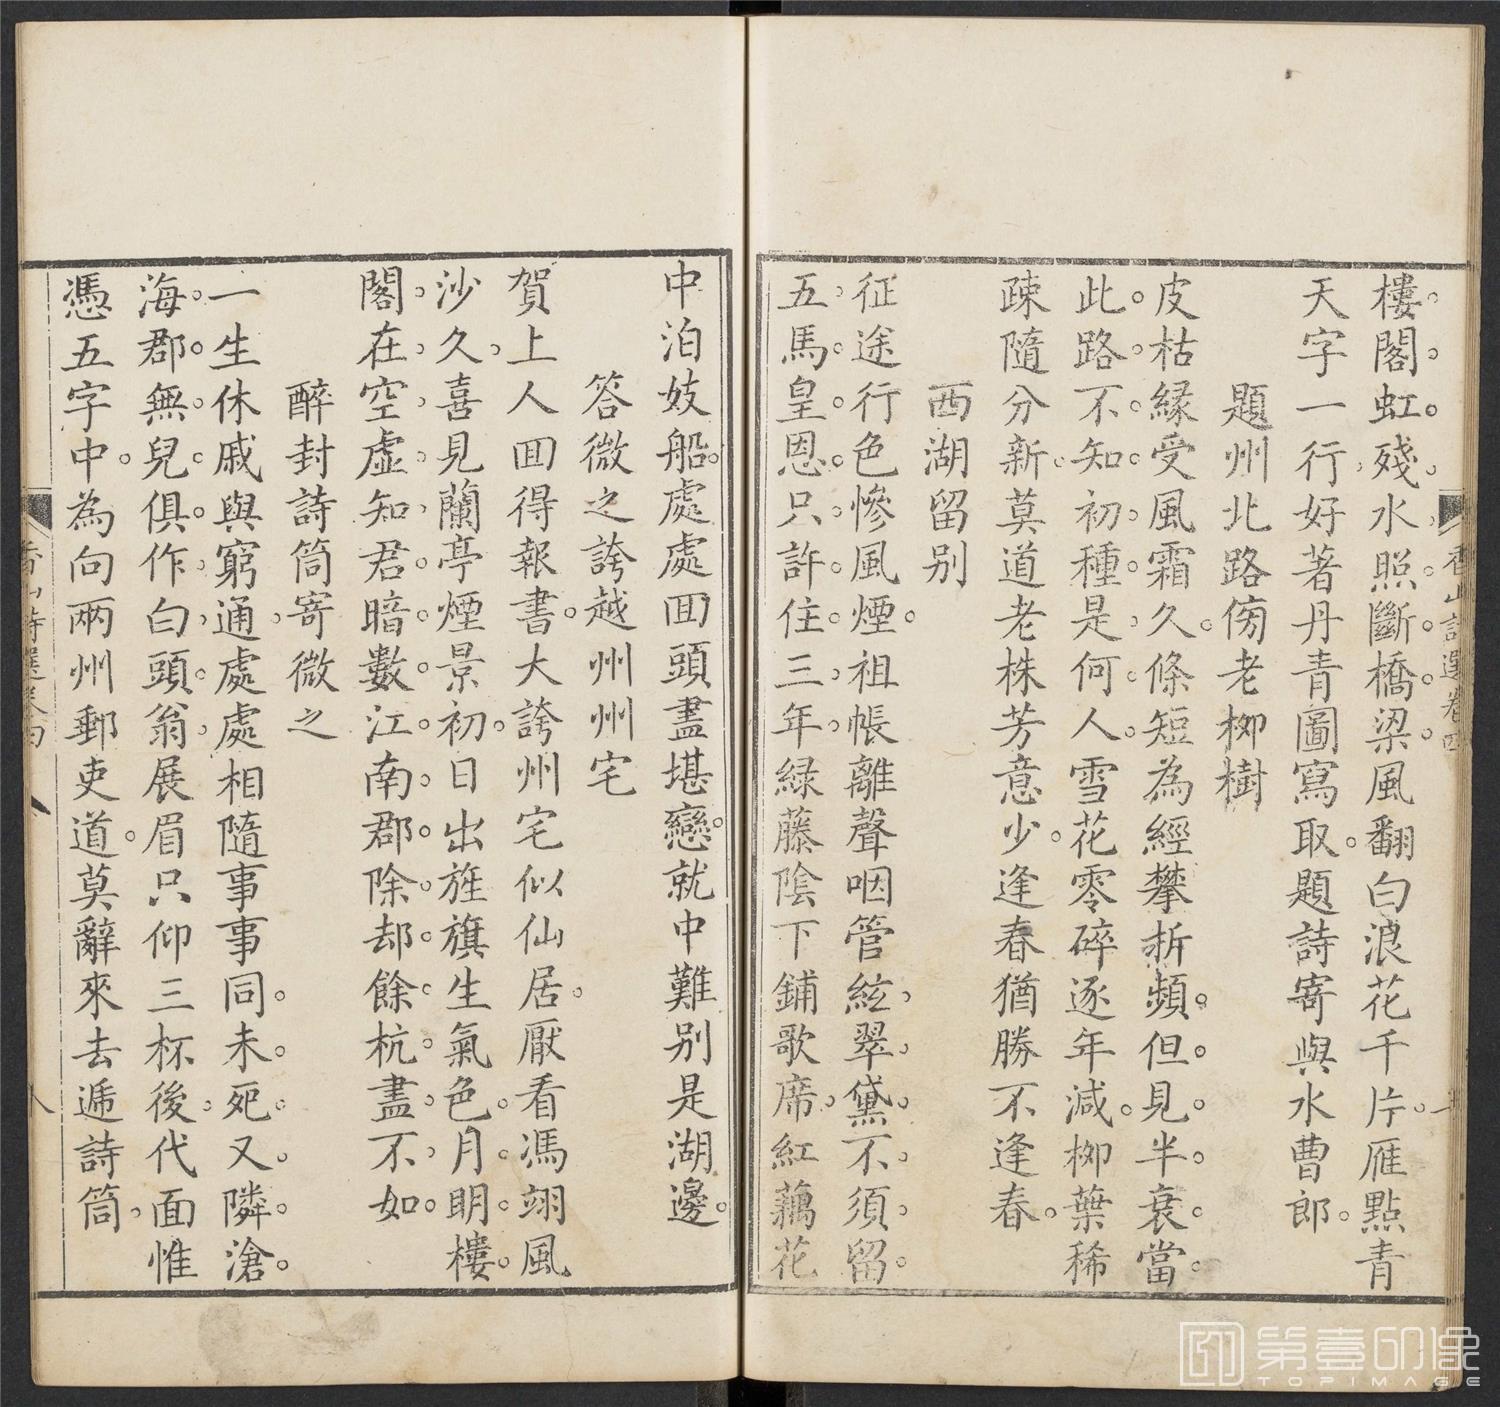 樓閣虹殘水照斷橋梁風翻白浪花千片雁點青
天字一行好著丹青圖寫取題詩寄與水曹郎
題州北路傍老栁樹
皮枯緣受風霜久條短為經攀折頻但見半衰當
此路不知初種是何人雪花零碎逐年減栁葉稀
疎隨分新莫道老株芳意少逢春猶勝不逢春
西湖留别
征途行色慘風煙祖帳離聲咽管絃翠黛不須留
五馬皇恩只許住三年緑藤陰下鋪歌席紅藕花
香山詩選卷四
中泊妓船處處囬頭盡堪戀就中難别是湖邊
答微之誇越州州宅
賀上人囬得報書大誇州宅似仙居厭看馮翊風
沙久喜見蘭亭煙景初日出旌旗生氣色月明樓
閣在空虛知君暗數江南郡除却餘杭盡不如
醉封詩筒寄微之
一生休戚與窮通處處相隨事事同未死又隣滄
海郡無兒俱作白頭翁展眉只仰三杯後代面惟
憑五字中為向兩州郵吏道莫辭來去遞詩筒
香山詩選卷四
八
第壹印像
TOPIMAGE